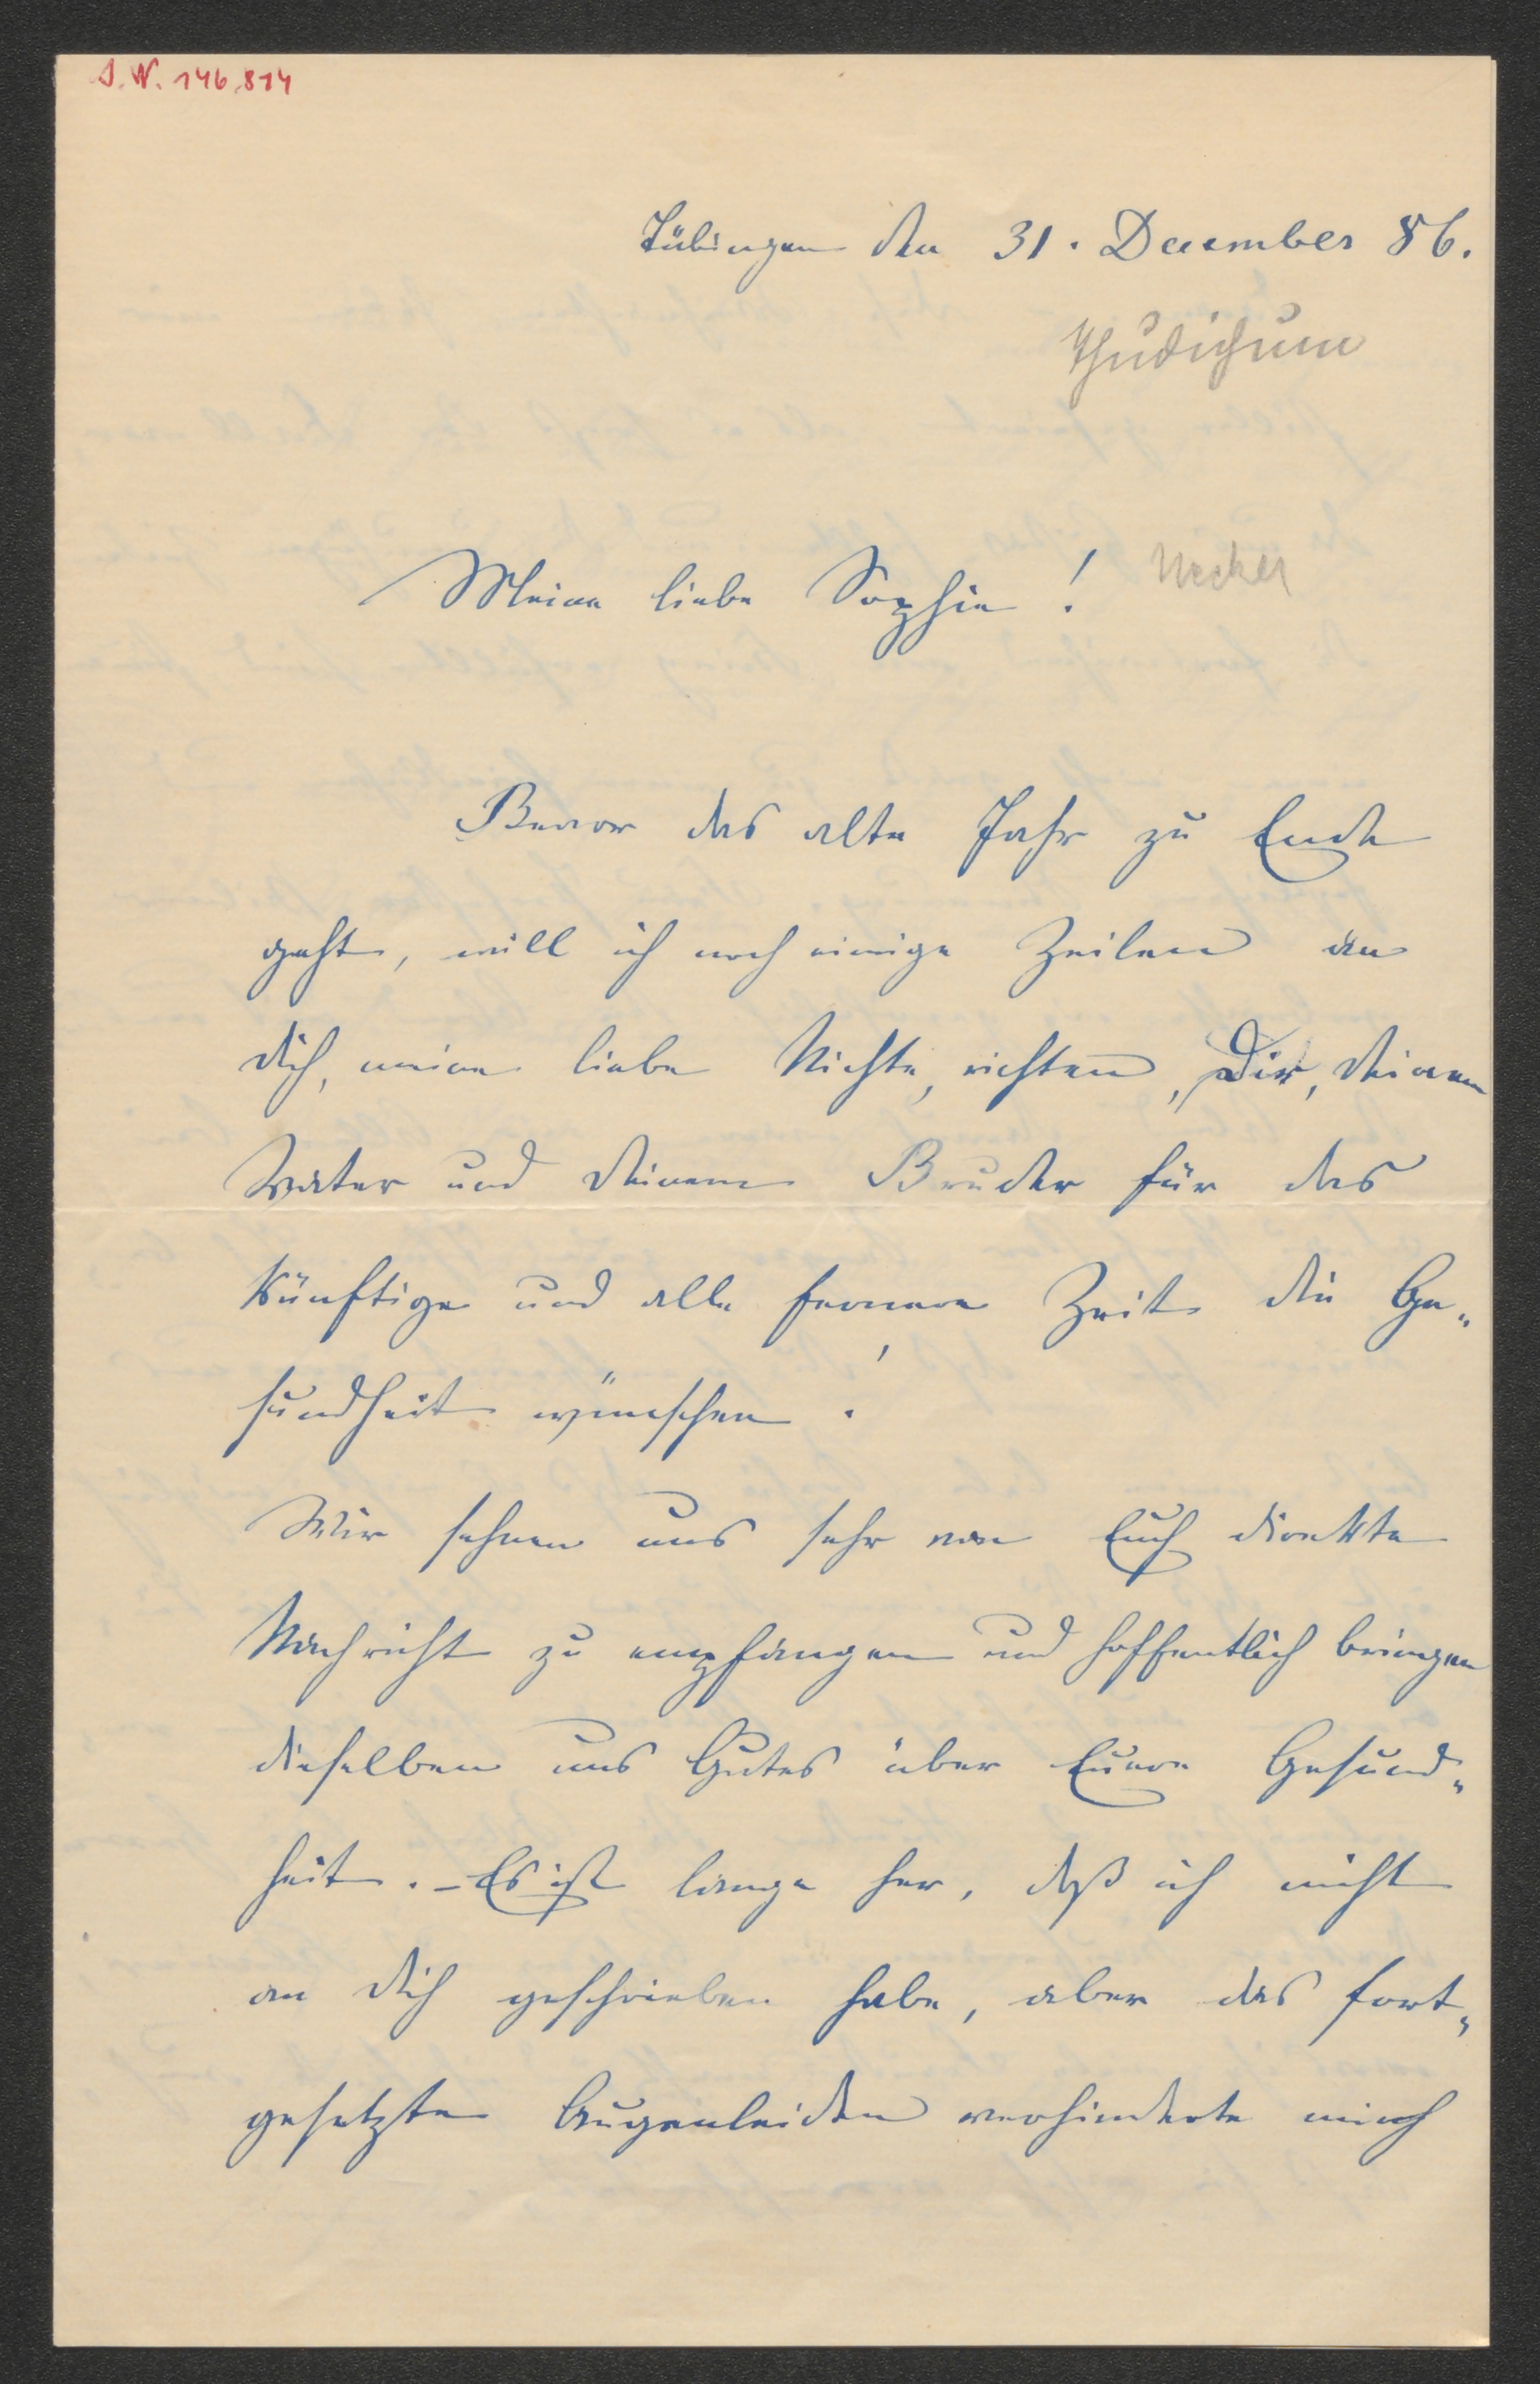 J.N. 146.814
Tübingen den 31. December 86.
Thudichum
Meine liebe Sophie! Necker
Bevor das alte Jahr zu Ende
geht, will ich noch einige Zeilen an
dich, meine liebe Nichte, richten, Dir, deinem
Vater und deinem Bruder für das
künftige und alle fernere Zeit die Ge„
sundheit wünschen!
Wir sehnen uns sehr von Euch direkte
Nachricht zu empfangen und hoffentlich bringen
dieselben uns Gutes über Euere Gesund„
heit. – Es ist lange her, daß ich nicht
an dich geschrieben habe, aber das fort„
gesetzte Augenleiden verhinderte mich